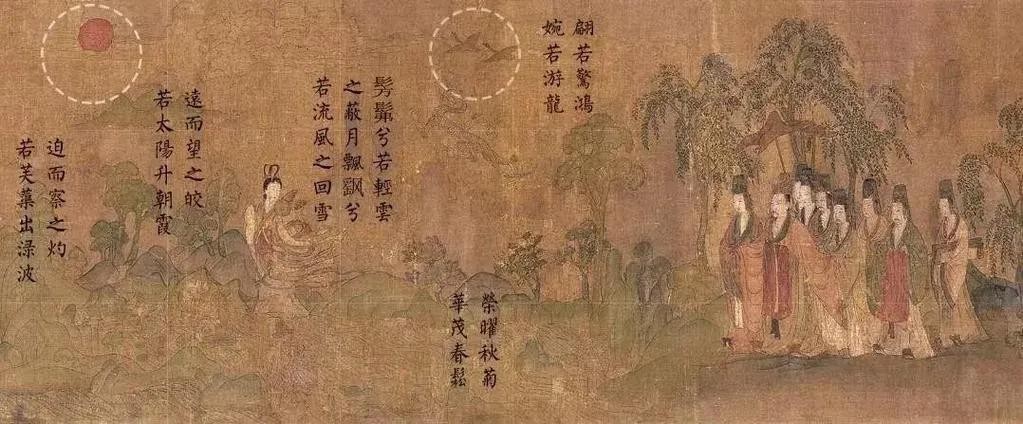 翩若驚鴻
婉若游龍
榮曜秋菊
華茂春鬆
髣髴兮若輕雲
之蔽月飄飖兮
若流風之回雪
遠而望之皎
若太陽升朝霞
迫而察之灼
若芙蕖出淥波